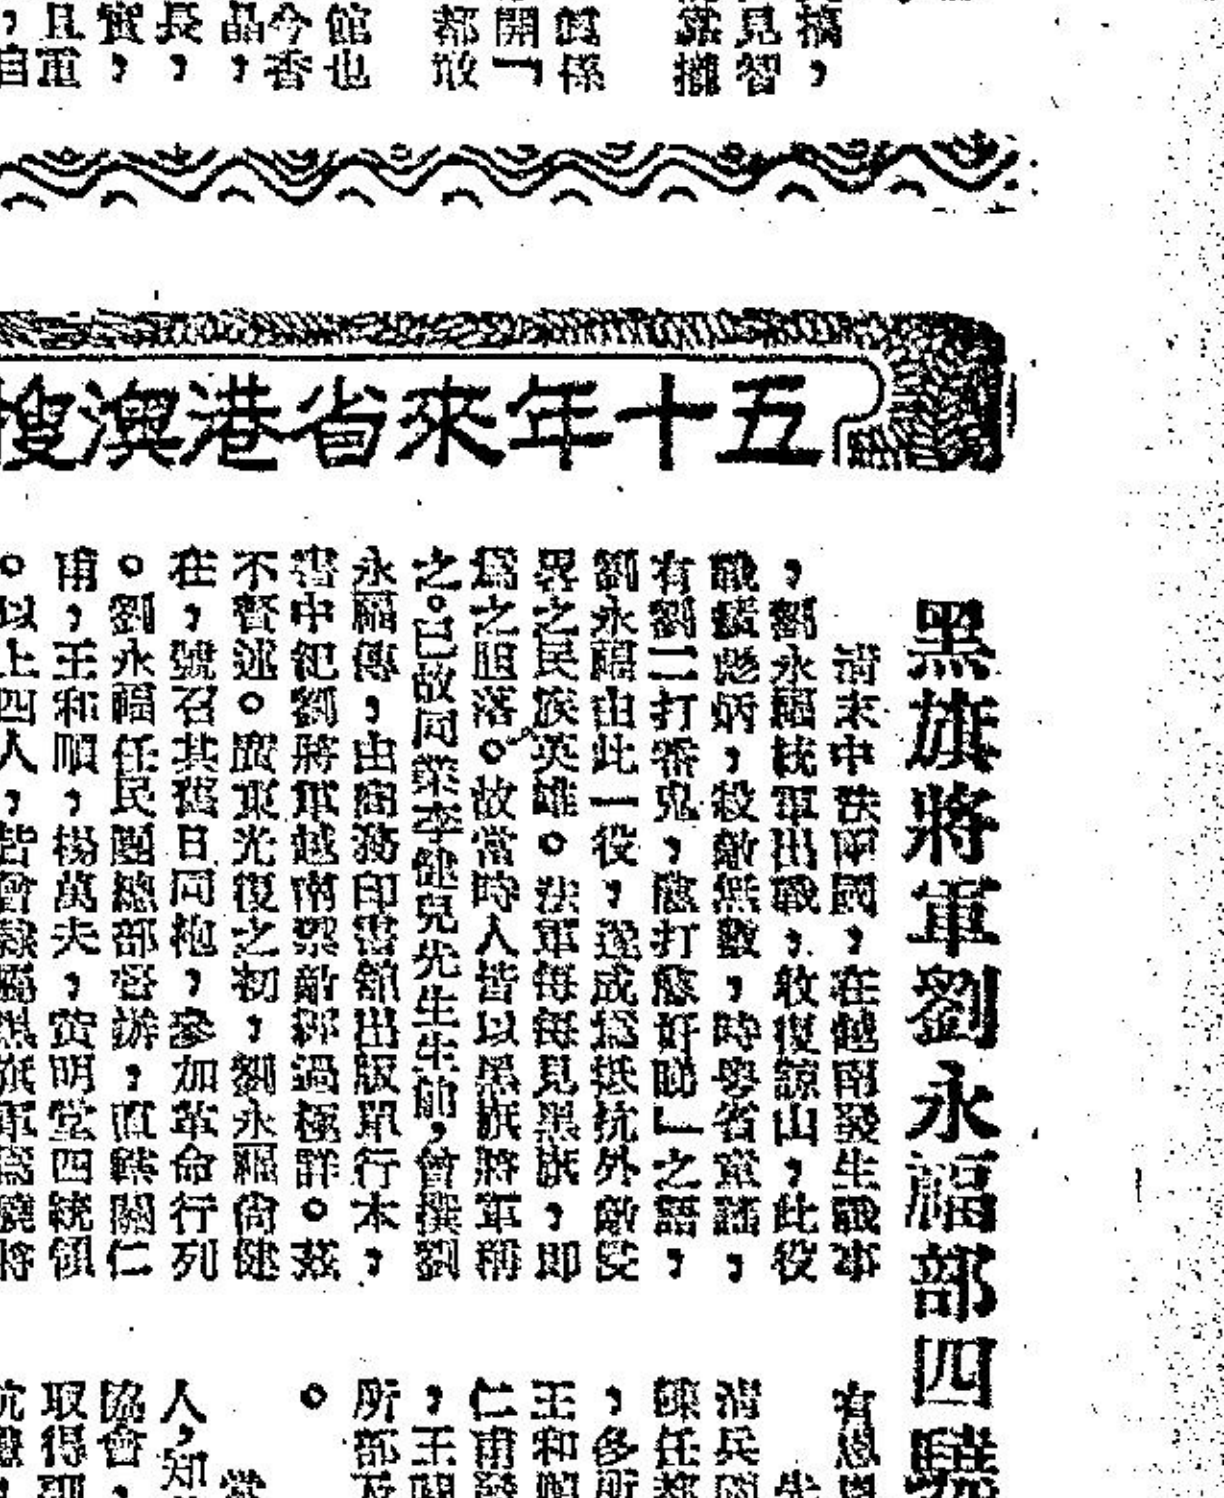 摘，
見智
眞係
開「，
都敢
館也
今香
晶，
長，
實，
且重
，自
五十年來省港澳搜
黑旗將軍劉永福部四驍
清末中法兩國，在越南發生戰事
，劉永福統軍出戰，收復諒山，此役
戰績彪炳，殺敵無數，時粤省童謠，
有劉二打番鬼，應打應好睇」之語，
劉永福由此一役，遂成爲抵抗外敵
界之民族英雄。法軍每每見黑旗，即
爲之胆落。故當時人皆以黑旗將軍稱
之。已故同業李健兒先生生前，曾撰劉
永福傳，由商務印書館出版單行本，
書中紀劉將軍越南禦敵經過極詳。茲
不贅述。廣東光復之初，劉永福尙健
在，號召其舊日同袍，參加革命行列
。劉永福任民團總部督辦，直轄關仁
甫，王和順，楊萬夫，黃明堂四統領
。以上四人，皆曾隸屬黑旗軍爲驍將
有
清兵
陳任
，多所
王和順
仁甫
，王
所部及
。
當
人，知
協會，
取得
抗